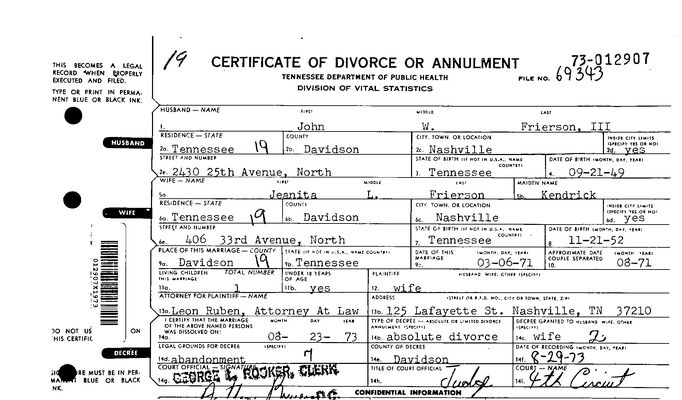 19 CERTIFICATE OF DIVORCE OR ANNULMENT 73-012907
TENNESSEE DEPARTMENT OF PUBLIC HEALTH FILE NO. 69343
DIVISION OF VITAL STATISTICS
THIS BECOMES A LEGAL
RECORD WHEN PROPERLY
EXECUTED AND FILED.
TYPE OR PRINT IN PERMA-
NENT BLUE OR BLACK
INK.
HUSBAND — NAME FIRST MIDDLE LAST
1. John W. Frierson, III
HUSBAND
RESIDENCE — STATE COUNTY CITY, TOWN, OR LOCATION INSIDE CITY LIMITS (SPECIFY YES OR NO)
2a. Tennessee 19 2b. Davidson 2c. Nashville 2d. yes
STREET AND NUMBER STATE OF BIRTH (IF NOT IN U.S.A., NAME COUNTRY) DATE OF BIRTH (MONTH, DAY, YEAR)
2e. 2430 25th Avenue, North 3. Tennessee 4. 09-21-49
WIFE — NAME FIRST MIDDLE LAST MAIDEN NAME
5a. Jeanita L. Frierson 5b. Kendrick
WIFE
RESIDENCE — STATE COUNTY CITY, TOWN, OR LOCATION INSIDE CITY LIMITS (SPECIFY YES OR NO)
6a. Tennessee 19 6b. Davidson 6c. Nashville 6d. yes
STREET AND NUMBER STATE OF BIRTH (IF NOT IN U.S.A., NAME COUNTRY) DATE OF BIRTH (MONTH, DAY, YEAR)
6e. 406 33rd Avenue, North 7. Tennessee 8. 11-21-52
PLACE OF THIS MARRIAGE — COUNTY STATE (IF NOT IN U.S.A., NAME COUNTRY) DATE OF THIS MARRIAGE (MONTH, DAY, YEAR) APPROXIMATE DATE COUPLE SEPARATED
9a. Davidson 19 9b. Tennessee 9c. 03-06-71 10. 08-71
LIVING CHILDREN THIS MARRIAGE TOTAL NUMBER UNDER 18 YEARS OF AGE PLAINTIFF HUSBAND, WIFE, OTHER (SPECIFY)
11a. 1 11b. yes 12. wife
ATTORNEY FOR PLAINTIFF — NAME ADDRESS (STREET OR R.F.D. NO., CITY OR TOWN, STATE, ZIP)
13a. Leon Ruben, Attorney At Law 13b. 125 Lafayette St. Nashville, TN 37210
I CERTIFY THAT THE MARRIAGE OF THE ABOVE NAMED PERSONS WAS DISSOLVED ON: MONTH DAY YEAR TYPE OF DECREE — ABSOLUTE OR LIMITED DIVORCE ANNULMENT (SPECIFY) DECREE GRANTED TO HUSBAND, WIFE, OTHER (SPECIFY)
14a. 08- 23- 73 14b. absolute divorce 14c. wife 2
DO NOT US ON
THIS CERTIFIC
DECREE
LEGAL GROUNDS FOR DECREE (SPECIFY) COUNTY OF DECREE DATE OF RECORDING (MONTH, DAY, YEAR)
14d. abandonment 7 14e. Davidson 14f. 8-29-73
COURT OFFICIAL — SIGNATURE TITLE OF COURT OFFICIAL COURT — NAME
14g. GEORGE L. ROOKER, CLERK 14h. Judge 14i. 4th Circuit
MUST BE IN PER-
BLUE OR BLACK
INK.
D.C.
CONFIDENTIAL INFORMATION